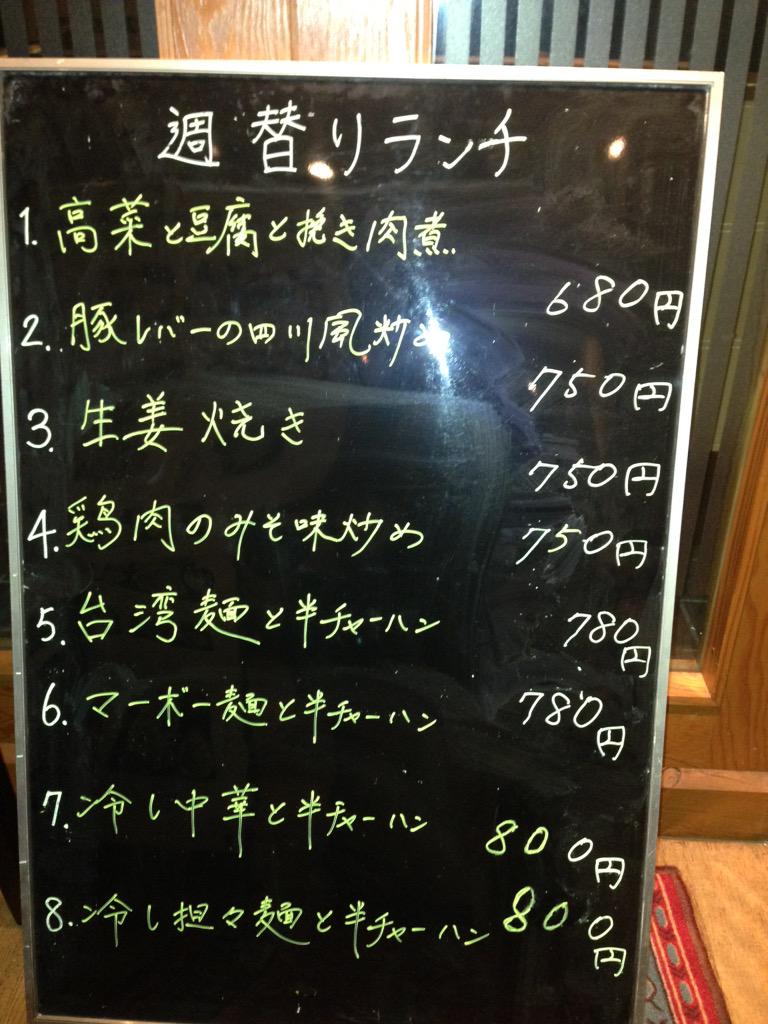 週替りランチ
1. 高菜と豆腐と挽き肉煮
680円
2. 豚レバーの四川風炒め
750円
3. 生姜焼き
750円
4. 鶏肉のみそ味炒め
750円
5. 台湾麺と半チャーハン
780円
6. マーボー麺と半チャーハン
780円
7. 冷し中華と半チャーハン
800円
8. 冷し担々麺と半チャーハン
800円